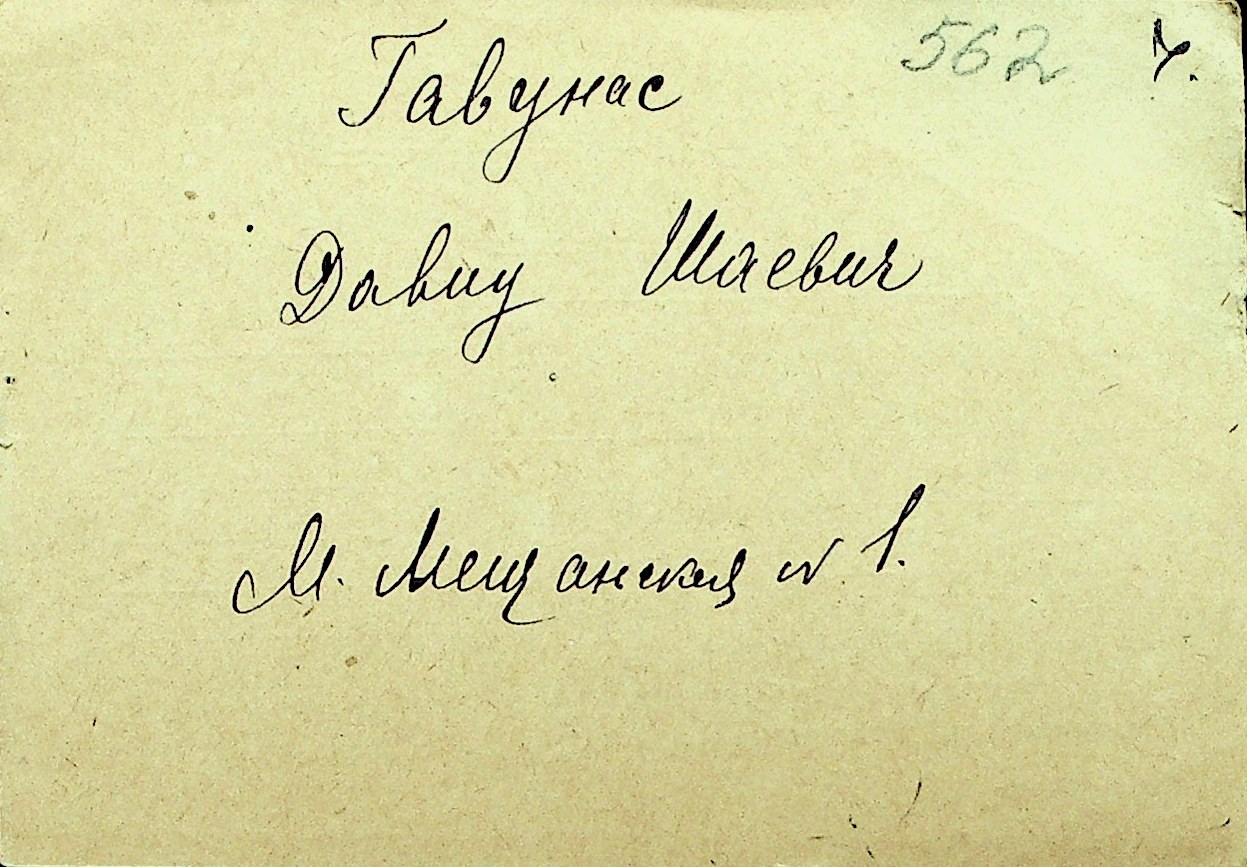 562
Гавунас
Давид Шаевич
М. Мещанская № 1.